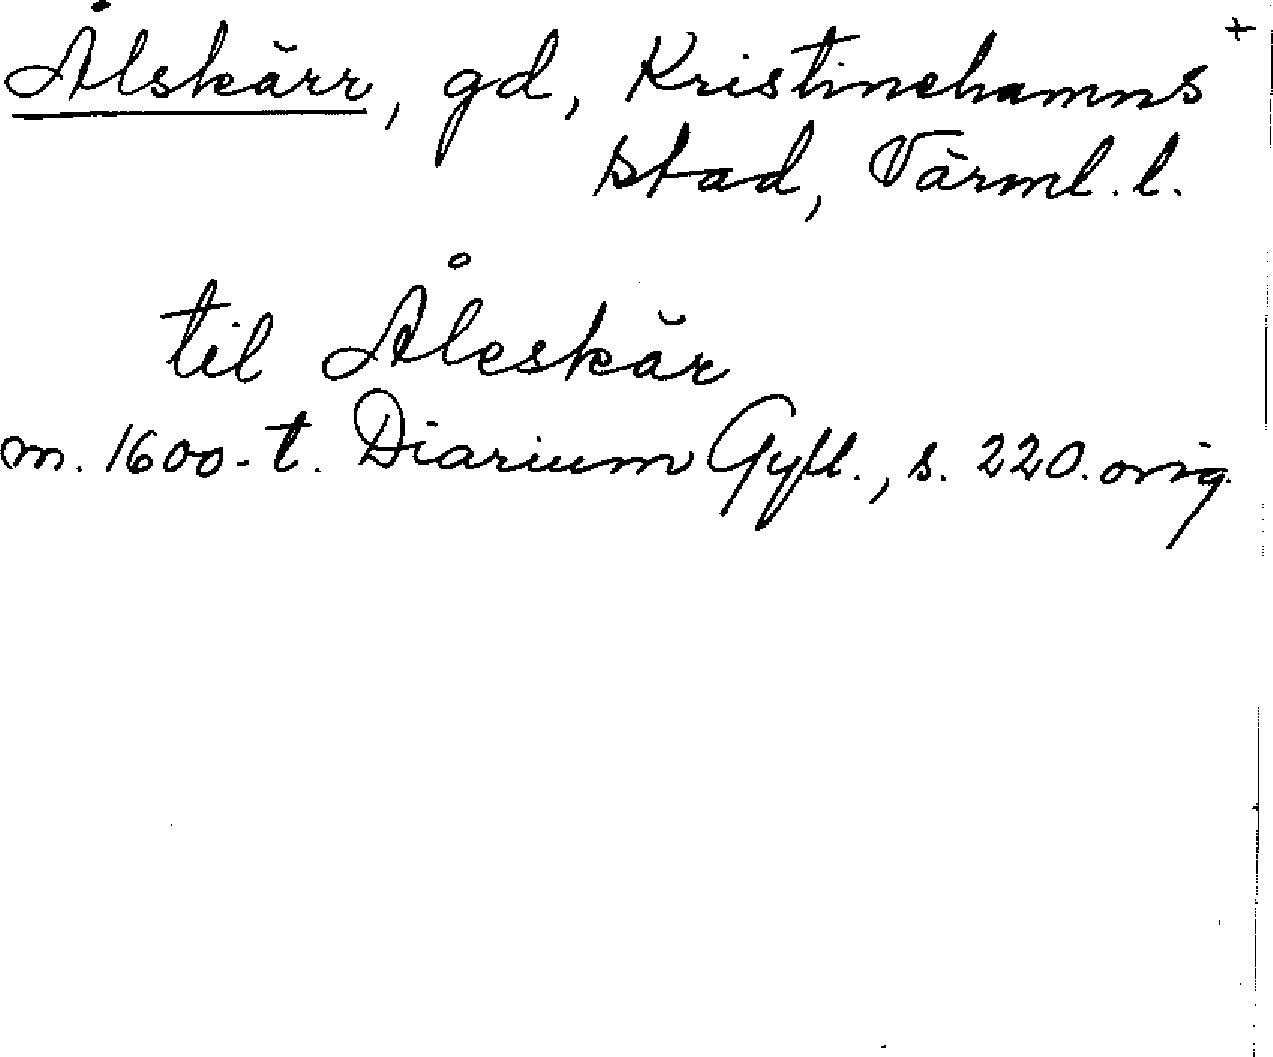 Ålskärr, gd, Kristinehamns +
stad, Värml. l.
til Åleskär
m. 1600-t. Diarium Gyll., s. 220. orig.